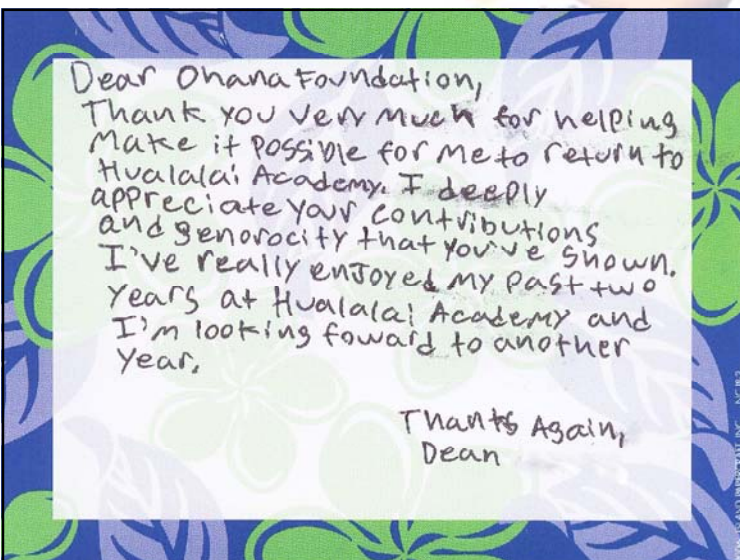 Dear Ohana Foundation,
Thank you very much for helping
make it possible for me to return to
Hualalai Academy. I deeply
appreciate your contributions
and generocity that you've shown.
I've really enjoyed my past two
years at Hualalai Academy and
I'm looking foward to another
year.
Thanks Again,
Dean